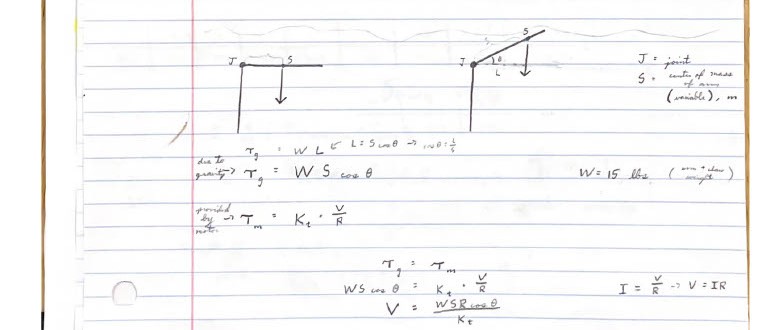 J S
J S θ L
J = joint
S = center of mass of arm (variable), m
τg = W L ← L = S cos θ → cos θ = L/S
due to gravity → τg = W S cos θ
W = 15 lbs (arm + claw weight)
provided by motor → τm = Kt · V/R
τg = τm
WS cos θ = Kt · V/R
I = V/R → V = IR
V = WSR cos θ / Kt